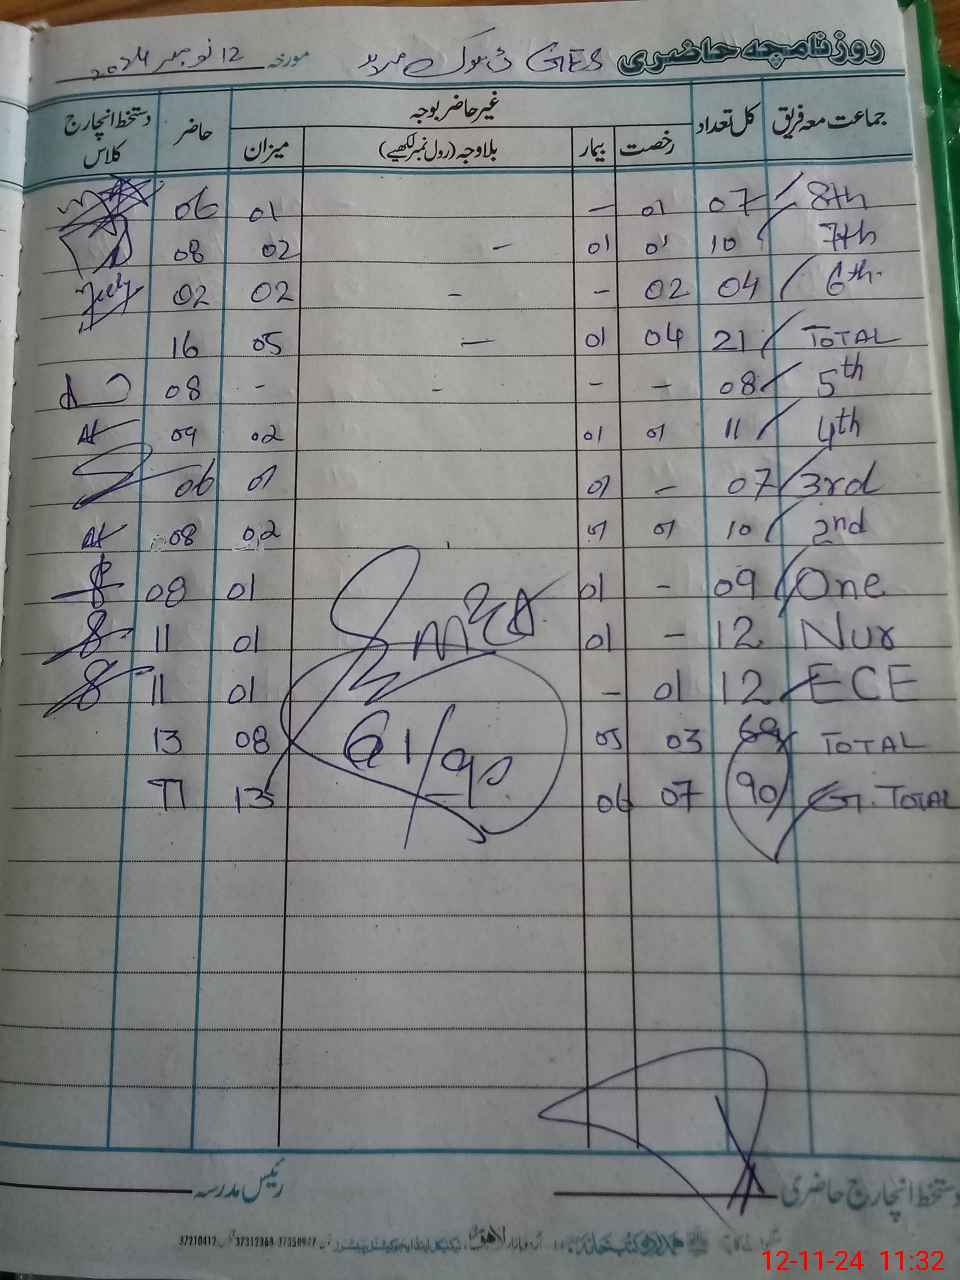 روزنامچہ حاضری GES مورخہ 12 نومبر 2024
جماعت معہ فریق کل تعداد غیر حاضر بوجہ حاضر دستخط انچارج کلاس
رخصت بیمار بلاوجہ (رول نمبر لکھیے) میزان
8th 07 01 – 01 06
7th 10 01 01 – 02 08
6th 04 02 – – 02 02
TOTAL 21 04 01 – 05 16
5th 08 – – – – 08
4th 11 01 01 02 09
3rd 07 – 01 01 06
2nd 10 01 01 02 08
One 09 – 01 01 08
Nur 12 – 01 01 11
ECE 12 01 – 01 11
TOTAL 69 03 05 08 13
G.TOTAL 90 07 06 13 77
61/90
دستخط انچارج حاضری رئیس مدرسہ
12-11-24 11:32